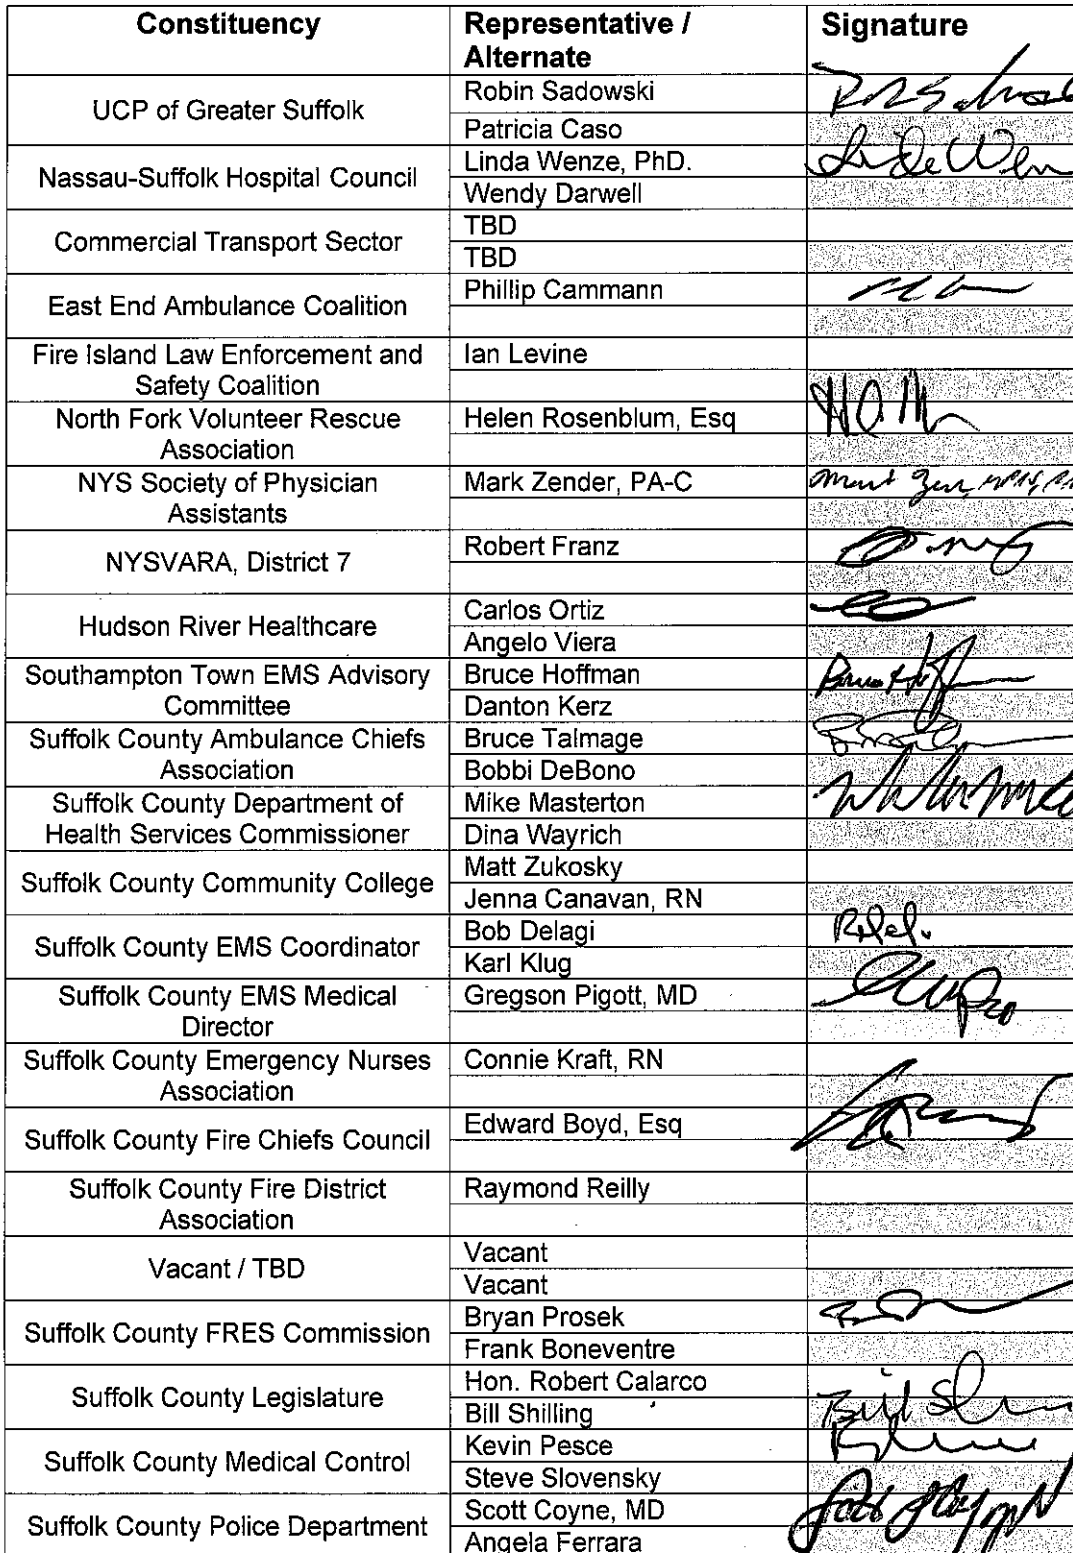 Constituency
Representative /
Alternate
Signature
UCP of Greater Suffolk
Robin Sadowski
Patricia Caso
Nassau-Suffolk Hospital Council
Linda Wenze, PhD.
Wendy Darwell
Commercial Transport Sector
TBD
TBD
East End Ambulance Coalition
Phillip Cammann
Fire Island Law Enforcement and
Safety Coalition
Ian Levine
North Fork Volunteer Rescue
Association
Helen Rosenblum, Esq
NYS Society of Physician
Assistants
Mark Zender, PA-C
NYSVARA, District 7
Robert Franz
Hudson River Healthcare
Carlos Ortiz
Angelo Viera
Southampton Town EMS Advisory
Committee
Bruce Hoffman
Danton Kerz
Suffolk County Ambulance Chiefs
Association
Bruce Talmage
Bobbi DeBono
Suffolk County Department of
Health Services Commissioner
Mike Masterton
Dina Wayrich
Suffolk County Community College
Matt Zukosky
Jenna Canavan, RN
Suffolk County EMS Coordinator
Bob Delagi
Karl Klug
Suffolk County EMS Medical
Director
Gregson Pigott, MD
Suffolk County Emergency Nurses
Association
Connie Kraft, RN
Suffolk County Fire Chiefs Council
Edward Boyd, Esq
Suffolk County Fire District
Association
Raymond Reilly
Vacant / TBD
Vacant
Vacant
Suffolk County FRES Commission
Bryan Prosek
Frank Boneventre
Suffolk County Legislature
Hon. Robert Calarco
Bill Shilling
Suffolk County Medical Control
Kevin Pesce
Steve Slovensky
Suffolk County Police Department
Scott Coyne, MD
Angela Ferrara